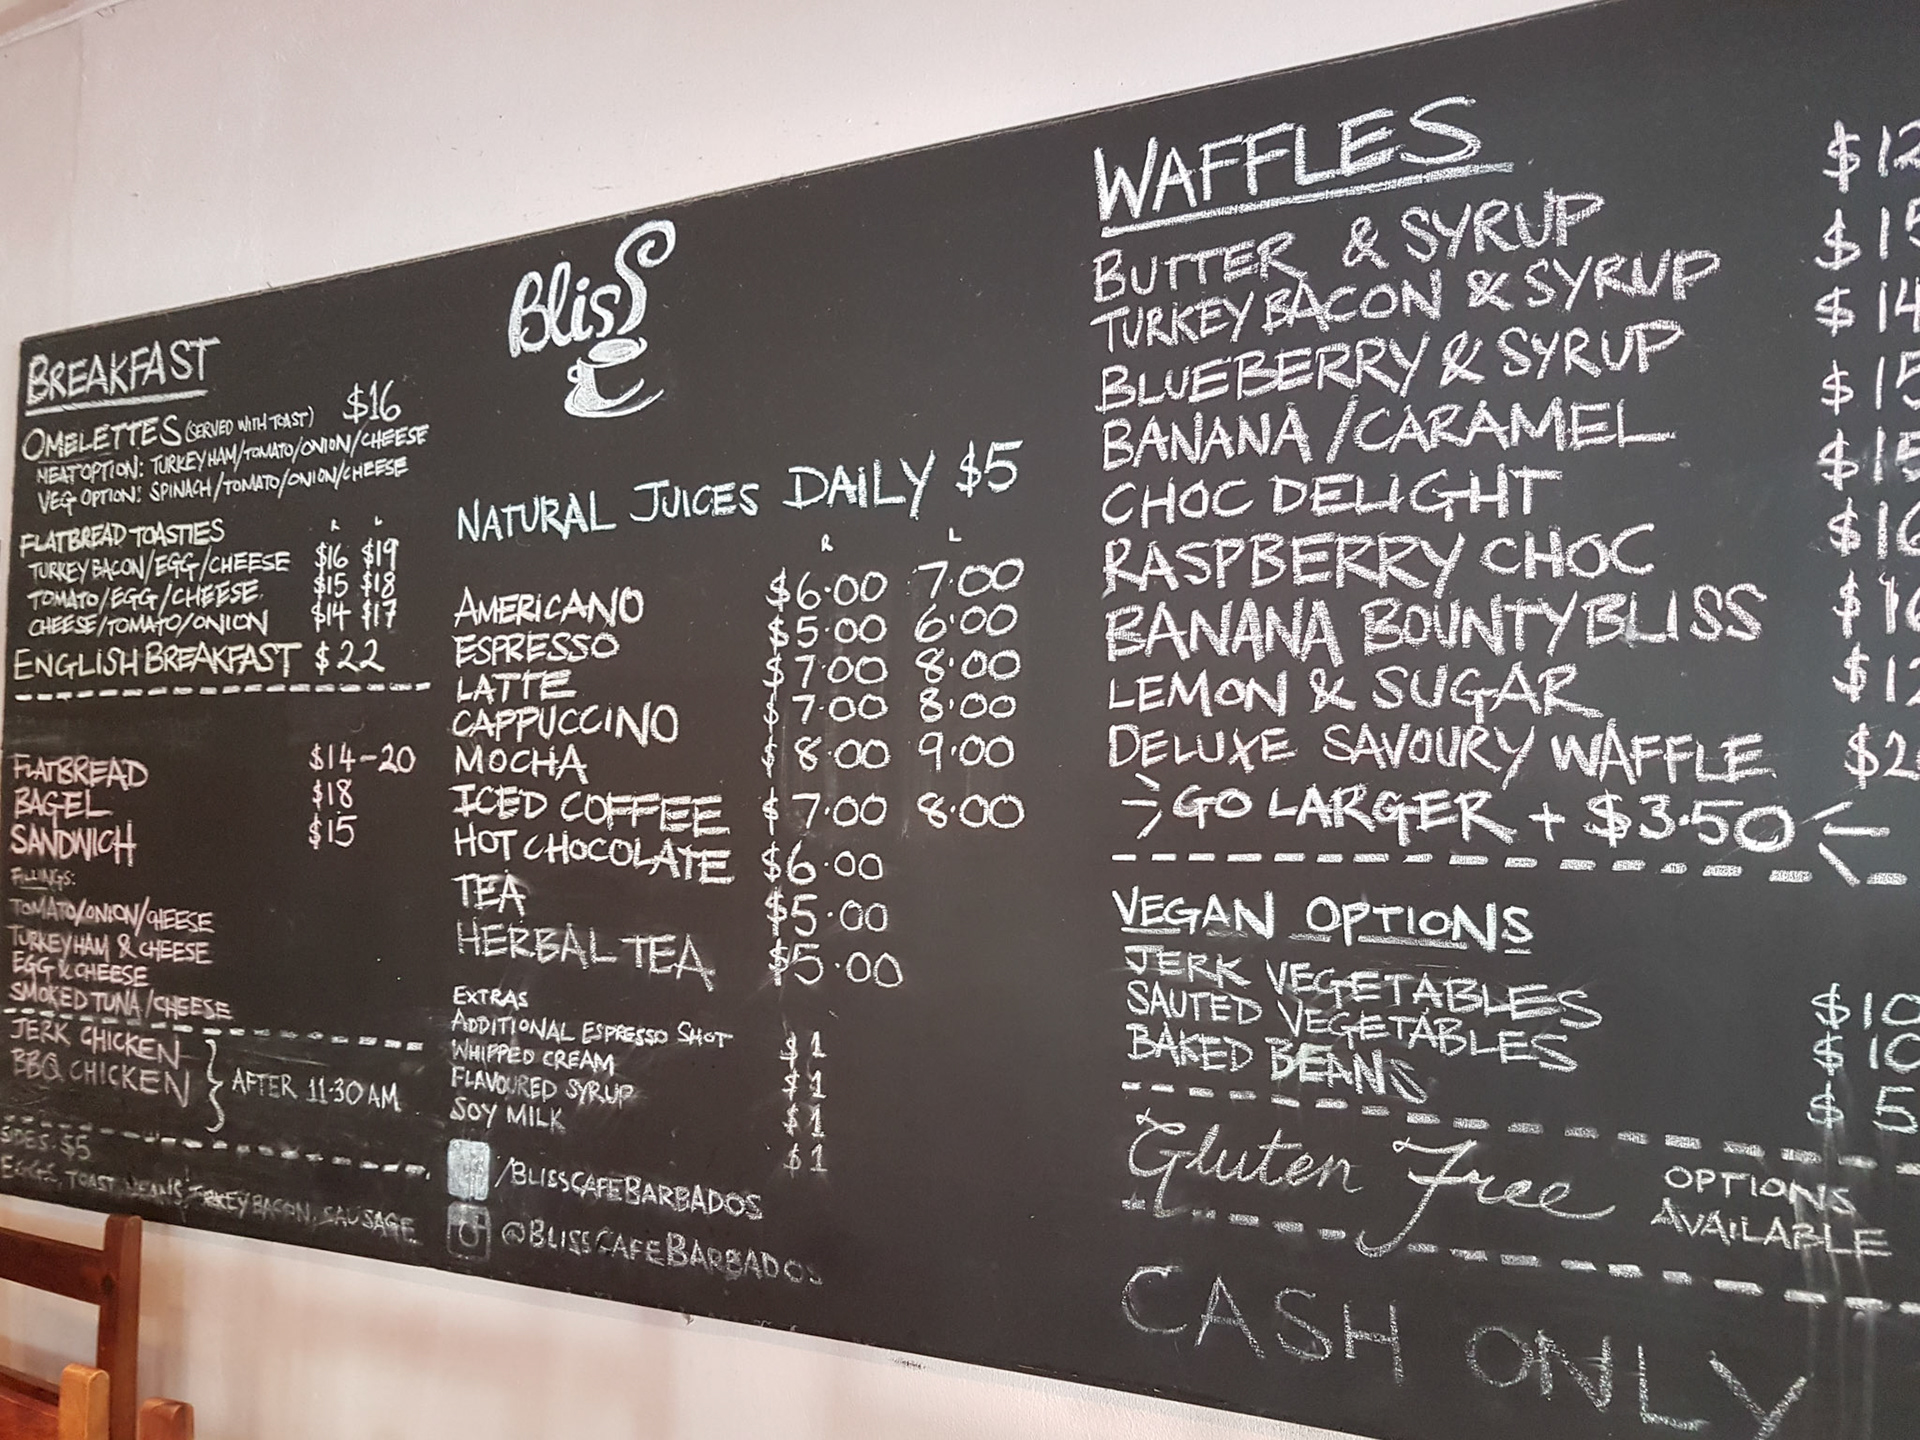 BREAKFAST
OMELETTES (SERVED WITH TOAST) $16
MEAT OPTION: TURKEY HAM/TOMATO/ONION/CHEESE
VEG OPTION: SPINACH/TOMATO/ONION/CHEESE
FLATBREAD TOASTIES R L
TURKEY BACON/EGG/CHEESE $16 $19
TOMATO/EGG/CHEESE $15 $18
CHEESE/TOMATO/ONION $14 $17
ENGLISH BREAKFAST $22
FLATBREAD $14-20
BAGEL $18
SANDWICH $15
FILLINGS:
TOMATO/ONION/CHEESE
TURKEY HAM & CHEESE
EGG & CHEESE
SMOKED TUNA/CHEESE
JERK CHICKEN
BBQ CHICKEN
AFTER 11·30 AM
SIDES $5
EGGS, TOAST, BEANS, TURKEY BACON, SAUSAGE
Bliss
NATURAL JUICES DAILY $5
R L
AMERICANO $6·00 7·00
ESPRESSO $5·00 6·00
LATTE $7·00 8·00
CAPPUCCINO $7·00 8·00
MOCHA $8·00 9·00
ICED COFFEE $7·00 8·00
HOT CHOCOLATE $6·00
TEA $5·00
HERBAL TEA $5·00
EXTRAS
ADDITIONAL ESPRESSO SHOT $1
WHIPPED CREAM $1
FLAVOURED SYRUP $1
SOY MILK $1
/BLISSCAFEBARBADOS
@BLISSCAFEBARBADOS
WAFFLES
BUTTER & SYRUP $12
TURKEY BACON & SYRUP $15
BLUEBERRY & SYRUP $14
BANANA/CARAMEL $15
CHOC DELIGHT $15
RASPBERRY CHOC $16
BANANA BOUNTY BLISS $16
LEMON & SUGAR $12
DELUXE SAVOURY WAFFLE $2
GO LARGER + $3·50
VEGAN OPTIONS
JERK VEGETABLES $10
SAUTED VEGETABLES $10
BAKED BEANS $5
Gluten Free OPTIONS AVAILABLE
CASH ONLY